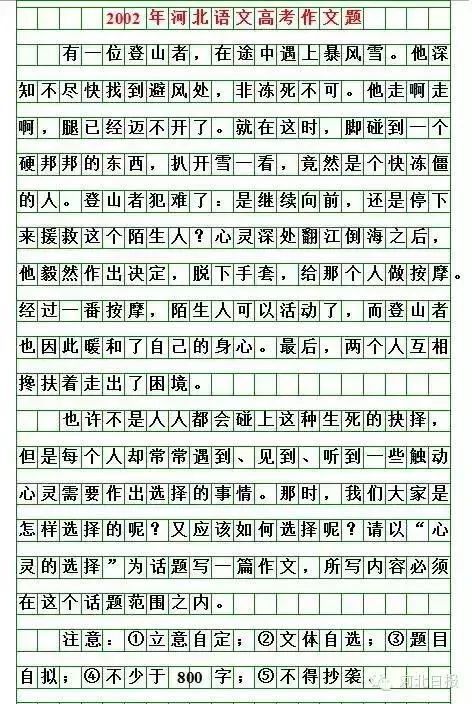 2002年河北语文高考作文题
有一位登山者，在途中遇上暴风雪。他深
知不尽快找到避风处，非冻死不可。他走啊走
啊，腿已经迈不开了。就在这时，脚碰到一个
硬邦邦的东西，扒开雪一看，竟然是个快冻僵
的人。登山者犯难了：是继续向前，还是停下
来援救这个陌生人？心灵深处翻江倒海之后，
他毅然作出决定，脱下手套，给那个人做按摩。
经过一番按摩，陌生人可以活动了，而登山者
也因此暖和了自己的身心。最后，两个人互相
搀扶着走出了困境。
也许不是人人都会碰上这种生死的抉择，
但是每个人却常常遇到、见到、听到一些触动
心灵需要作出选择的事情。那时，我们大家是
怎样选择的呢？又应该如何选择呢？请以“心
灵的选择”为话题写一篇作文，所写内容必须
在这个话题范围之内。
注意：①立意自定；②文体自选；③题目
自拟；④不少于800字；⑤不得抄袭
河北日报